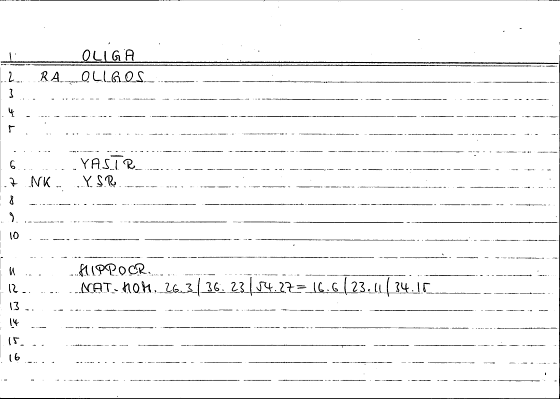 1 OLIGA
2 RA OLIGOS
3
4
5
6 YASĪR
7 NK YSR
8
9
10
11 HIPPOCR.
12 NAT.HOM. 26.3 | 36.23 | 54.27 = 16.6 | 23.11 | 34.15
13
14
15
16